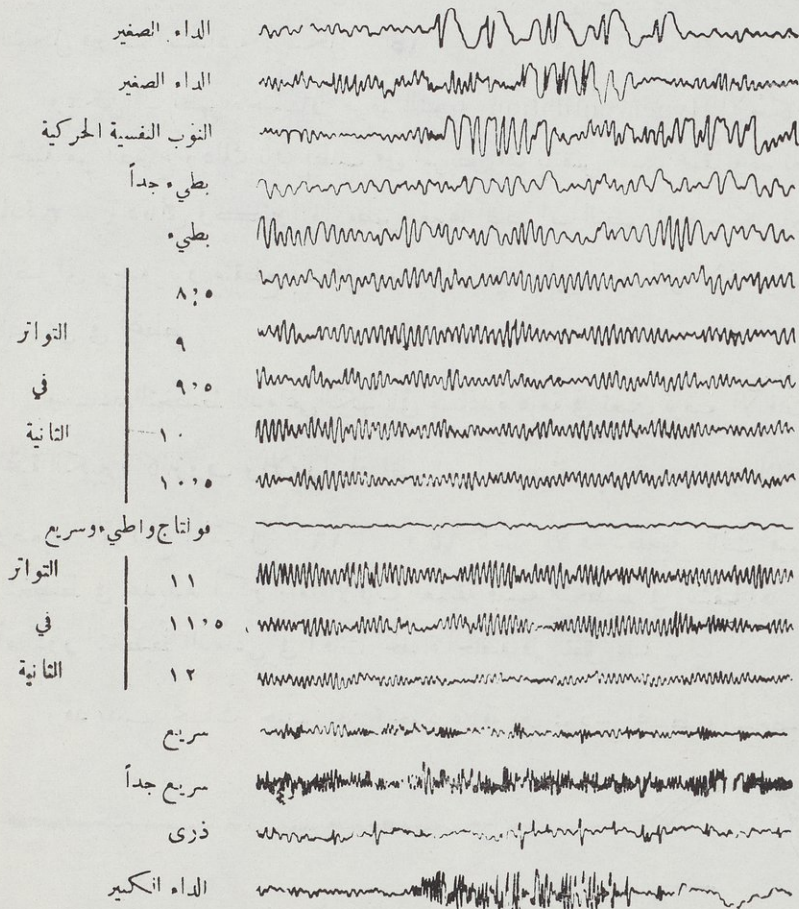 الداء الصغير
الداء الصغير
النوب النفسية الحركية
بطيء جداً
بطيء
٨,٥
التواتر
٩
في
٩,٥
الثانية
١٠
١٠,٥
فولتاج واطيء وسريع
التواتر
١١
في
١١,٥
الثانية
١٢
سريع
سريع جداً
ذرى
الداء الكبير